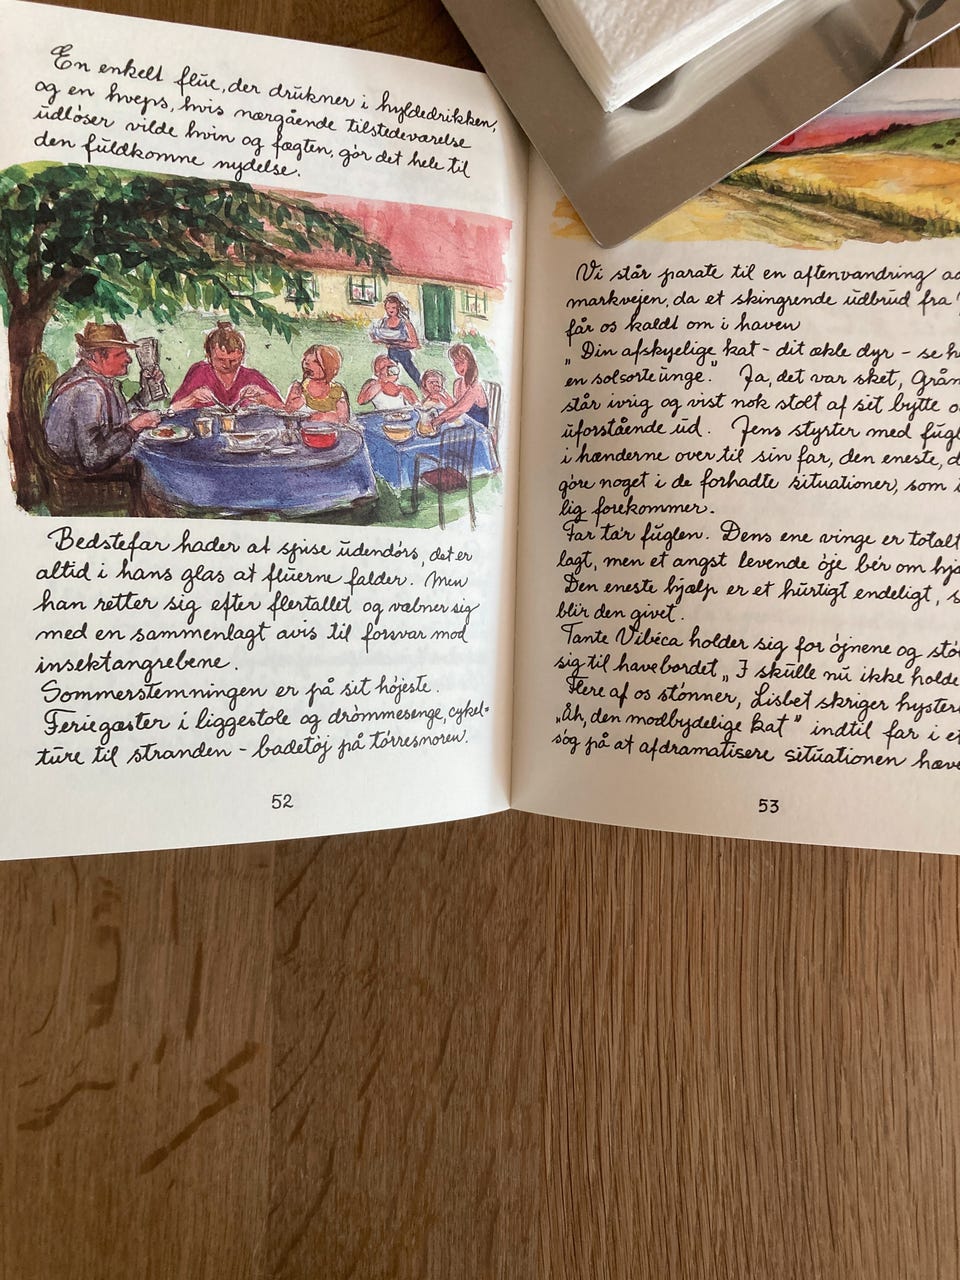 En enkelt flue, der drukner i hyldedrikken,
og en hveps, hvis nærgående tilstedeværelse
udløser vilde hvin og fægten, gør det hele til
den fuldkomne nydelse.
Bedstefar hader at spise udendørs, det er
altid i hans glas at fluerne falder. Men
han retter sig efter flertallet og væbner sig
med en sammenlagt avis til forsvar mod
insektangrebene.
Sommerstemningen er på sit højeste.
Feriegæster i liggestole og drømmesenge, cykel-
ture til stranden - badetøj på tørresnoren.
52
Vi står parate til en aftenvandring
markvejen, da et skingrende udbrud fra
får os kaldt om i haven
„Din afskyelige kat - dit økle dyr - se
en solsorteunge." Ja, det var sket,
står ivrig og vist nok stolt af sit bytte
uforstående ud. Jens styrter med
i hænderne over til sin far, den eneste,
gøre noget i de forhadte situationer, som
lig forekommer.
Far ta'r fuglen. Dens ene vinge er totalt
lagt, men et angst levende øje bér om
Den eneste hjælp er et hurtigt endeligt,
blir den givet.
Tante Vibéca holder sig for øjnene og
sig til havebordet „I skulle nu ikke
Flere af os stønner, Lisbet skriger
„Åh, den modbydelige kat" indtil far i
søg på at afdramatisere situationen
53